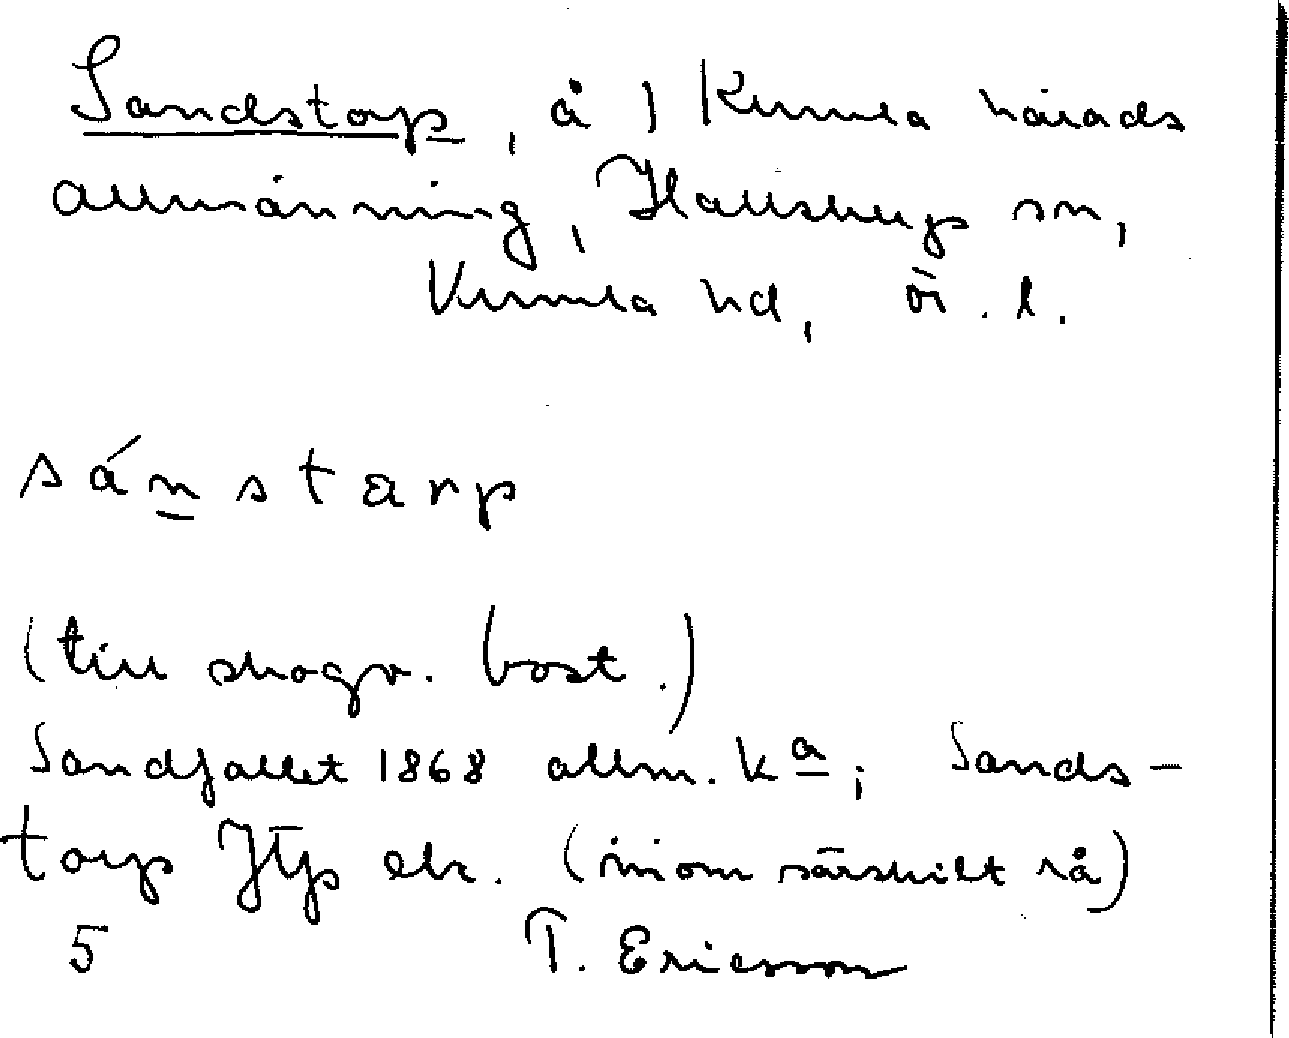 Sandstorp, å 1 Kumla härads
allmänning, Hallsbergs sn,
Kumla hd, Ör. l.
sánstarp
(till skogv. bost.)
Sandfallet 1868 allm. kª; Sands-
torp Jfp ek. (inom särskilt rå)
5 T. Ericsson